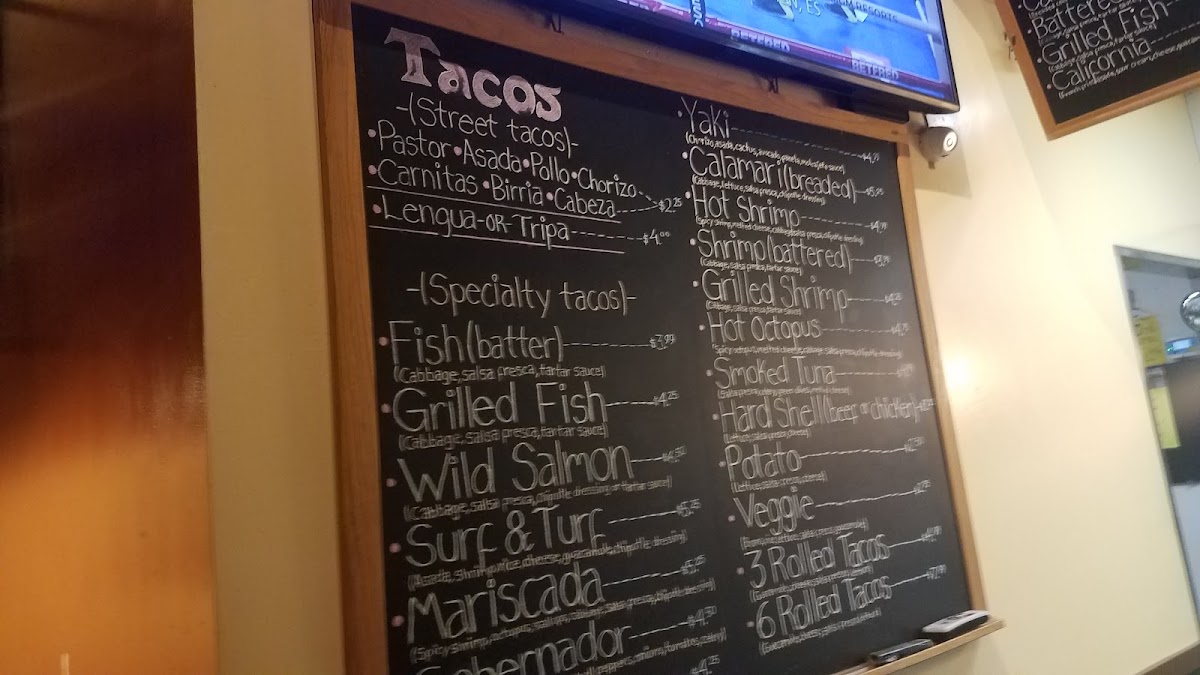 Tacos
-(Street tacos)-
•Pastor•Asada•Pollo•Chorizo
•Carnitas•Birria•Cabeza $2.25
•Lengua-OR-Tripa $4.00
-(Specialty tacos)-
•Fish(batter) $3.99
(Cabbage, salsa fresca, tartar sauce)
•Grilled Fish $4.25
(Cabbage, salsa fresca, tartar sauce)
•Wild Salmon $4.50
(Cabbage, salsa fresca, chipotle dressing or tartar sauce)
•Surf & Turf $5.25
(Asada, Shrimp, rice, cheese, guacamole, chipotle dressing)
•Mariscada
(Spicy shrimp, octopus, scallops, cabbage, salsa fresca, chipotle dressing)
Gobernador $4.50
peppers, onions, tomatoes, celery)
$4.25
•Yaki $4.99
•Calamari(breaded)
(Cabbage, lettuce, salsa fresca, chipotle dressing)
•Hot Shrimp
•Shrimp(battered) $3.99
(Cabbage, salsa fresca, tartar sauce)
•Grilled Shrimp $4.25
(Cabbage, salsa fresca, tartar sauce)
•Hot Octopus
•Smoked Tuna
•Hard Shell(beef or chicken)
(Lettuce, salsa fresca, cheese)
•Potato
(Lettuce, salsa fresca, cheese)
•Veggie
•3 Rolled Tacos
•6 Rolled Tacos $7.99
Battered
•Grilled Fish
(Cabbage, salsa fresca, tartar sauce)
•California
RESORTS
BETFRED
BETFRED